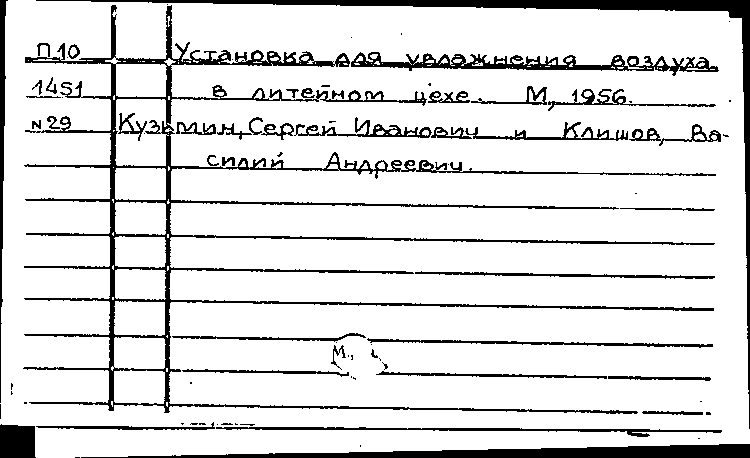 П10 Установка для увлажнения воздуха
1451 в литейном цехе. М., 1956.
№29 Кузьмин, Сергей Иванович и Климов, Ва-
силий Андреевич.
М.,